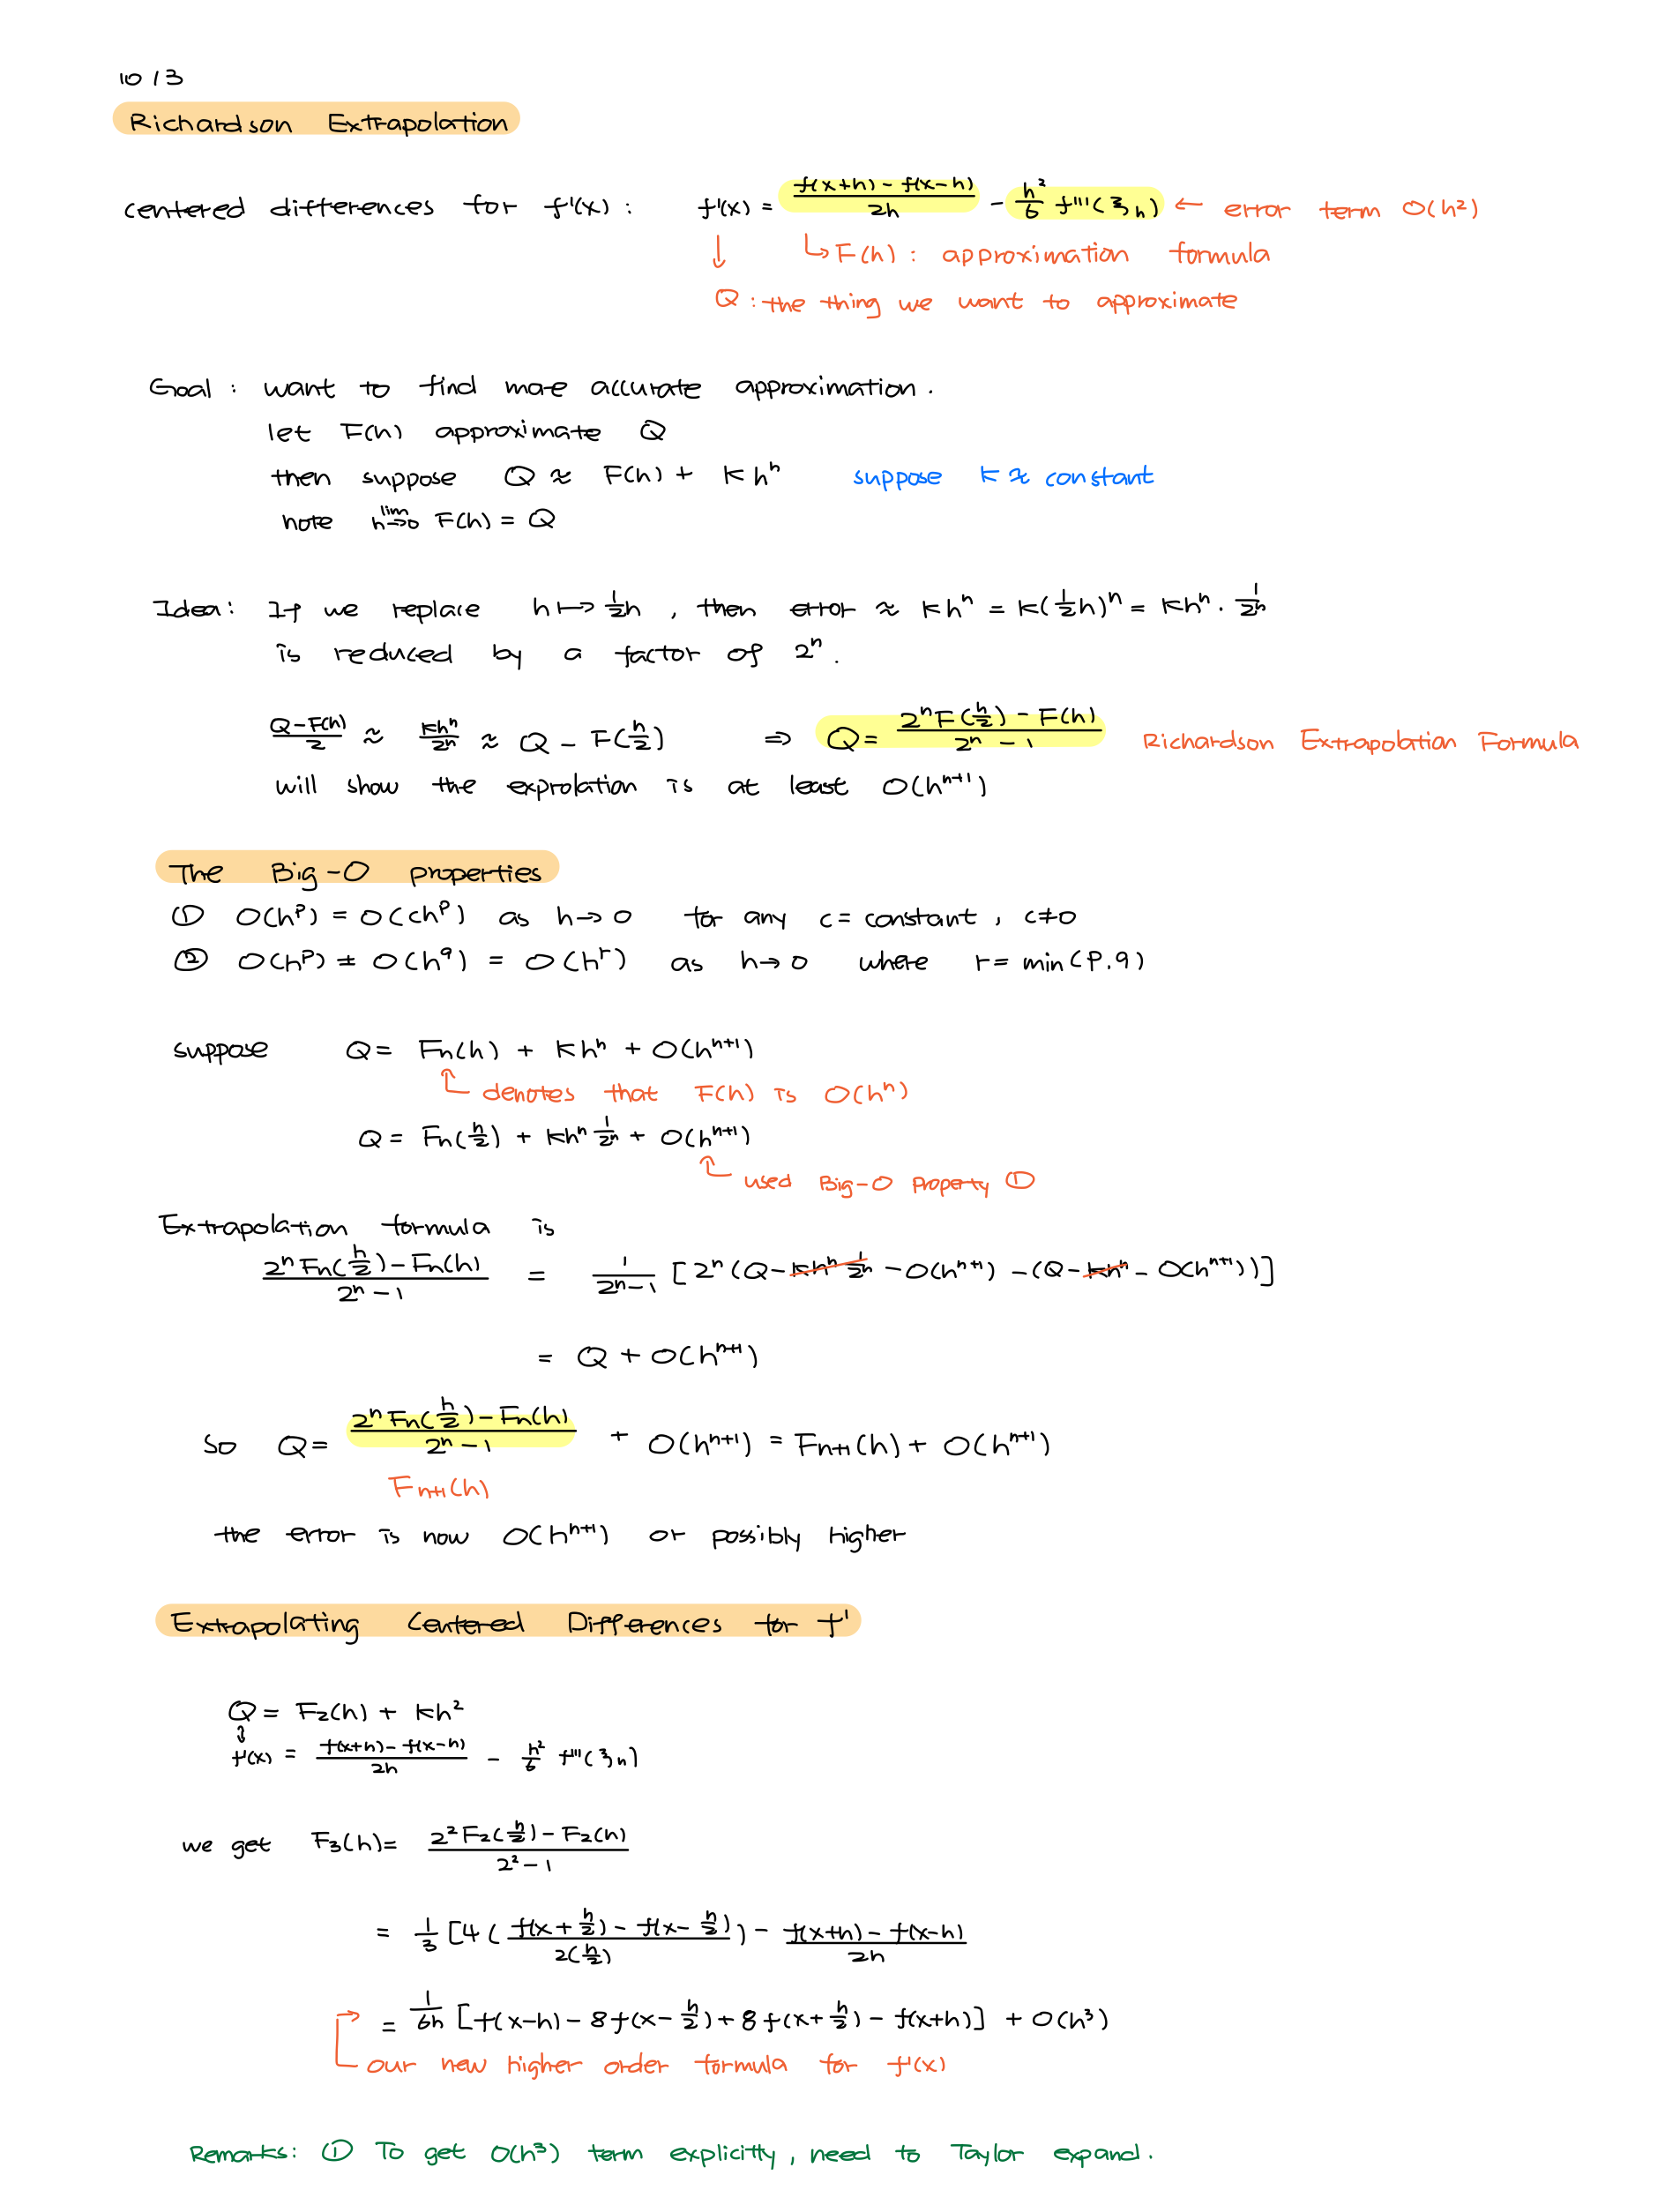 10/3
Richardson Extrapolation
centered differences for f'(x) : f'(x) = \frac{f(x+h) - f(x-h)}{2h} - \frac{h^2}{6} f'''(ξ_h) ← error term O(h²)
↓ ↳ F(h) : approximation formula
Q : the thing we want to approximate
Goal : want to find more accurate approximation.
let F(h) approximate Q
then suppose Q ≈ F(h) + Kh^n suppose K ≈ constant
note lim_{h→0} F(h) = Q
Idea : If we replace h ↦ \frac{1}{2}h , then error ≈ Kh^n = K(\frac{1}{2}h)^n = Kh^n · \frac{1}{2^n}
is reduced by a factor of 2^n.
\frac{Q-F(h)}{2} ≈ \frac{Kh^n}{2^n} ≈ Q - F(\frac{h}{2}) ⇒ Q = \frac{2^n F(\frac{h}{2}) - F(h)}{2^n - 1} Richardson Extrapolation Formula
will show the exprolation is at least O(h^{n+1})
The Big-O properties
① O(h^p) = O(ch^p) as h→0 for any c = constant , c≠0
② O(h^p) ± O(h^q) = O(h^r) as h→0 where r = min(p.q)
suppose Q = F_n(h) + Kh^n + O(h^{n+1})
↑ denotes that F(h) is O(h^n)
Q = F_n(\frac{h}{2}) + Kh^n \frac{1}{2^n} + O(h^{n+1})
↑ used Big-O property ①
Extrapolation formula is
\frac{2^n F_n(\frac{h}{2}) - F_n(h)}{2^n - 1} = \frac{1}{2^n - 1} [2^n (Q - Kh^n \frac{1}{2^n} - O(h^{n+1}) - (Q - Kh^n - O(h^{n+1}))]
= Q + O(h^{n+1})
so Q = \frac{2^n F_n(\frac{h}{2}) - F_n(h)}{2^n - 1} + O(h^{n+1}) = F_{n+1}(h) + O(h^{n+1})
F_{n+1}(h)
the error is now O(h^{n+1}) or possibly higher
Extrapolating Centered Differences for f'
Q = F_2(h) + Kh²
↓
f'(x) = \frac{f(x+h) - f(x-h)}{2h} - \frac{h^2}{6} f'''(ξ_h)
we get F_3(h) = \frac{2^2 F_2(\frac{h}{2}) - F_2(h)}{2^2 - 1}
= \frac{1}{3} [4 (\frac{f(x+\frac{h}{2}) - f(x-\frac{h}{2})}{2(\frac{h}{2})}) - \frac{f(x+h) - f(x-h)}{2h}
= \frac{1}{6h} [f(x-h) - 8f(x-\frac{h}{2}) + 8f(x+\frac{h}{2}) - f(x+h)] + O(h³)
our new higher order formula for f'(x)
Remarks: ① To get O(h³) term explicitly, need to Taylor expand.